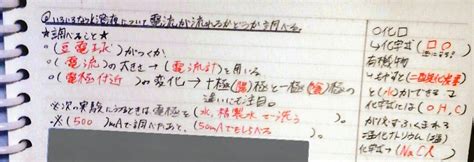 ②いろいろな水溶液について電流が流れるかどうか調べる。
★調べること★
○(豆電球)がつくか
○(電流)の大きさ→(電流計)を用いる
○(電極付近)の変化→+極(陽)極と−極(陰)極の
違いにも注目。
※次の実験にうつるときは電極を(水,精製水で洗う)。
※(500)mAで調べたあと、(50mAでもしらべる)。
○化
↳化学式(
有機物
↳(二酸化炭素)
と(水)ができる
化学式には(O,H,C)
がふくまれる
塩化ナトリウム(塩)
化学式→(NaCl)